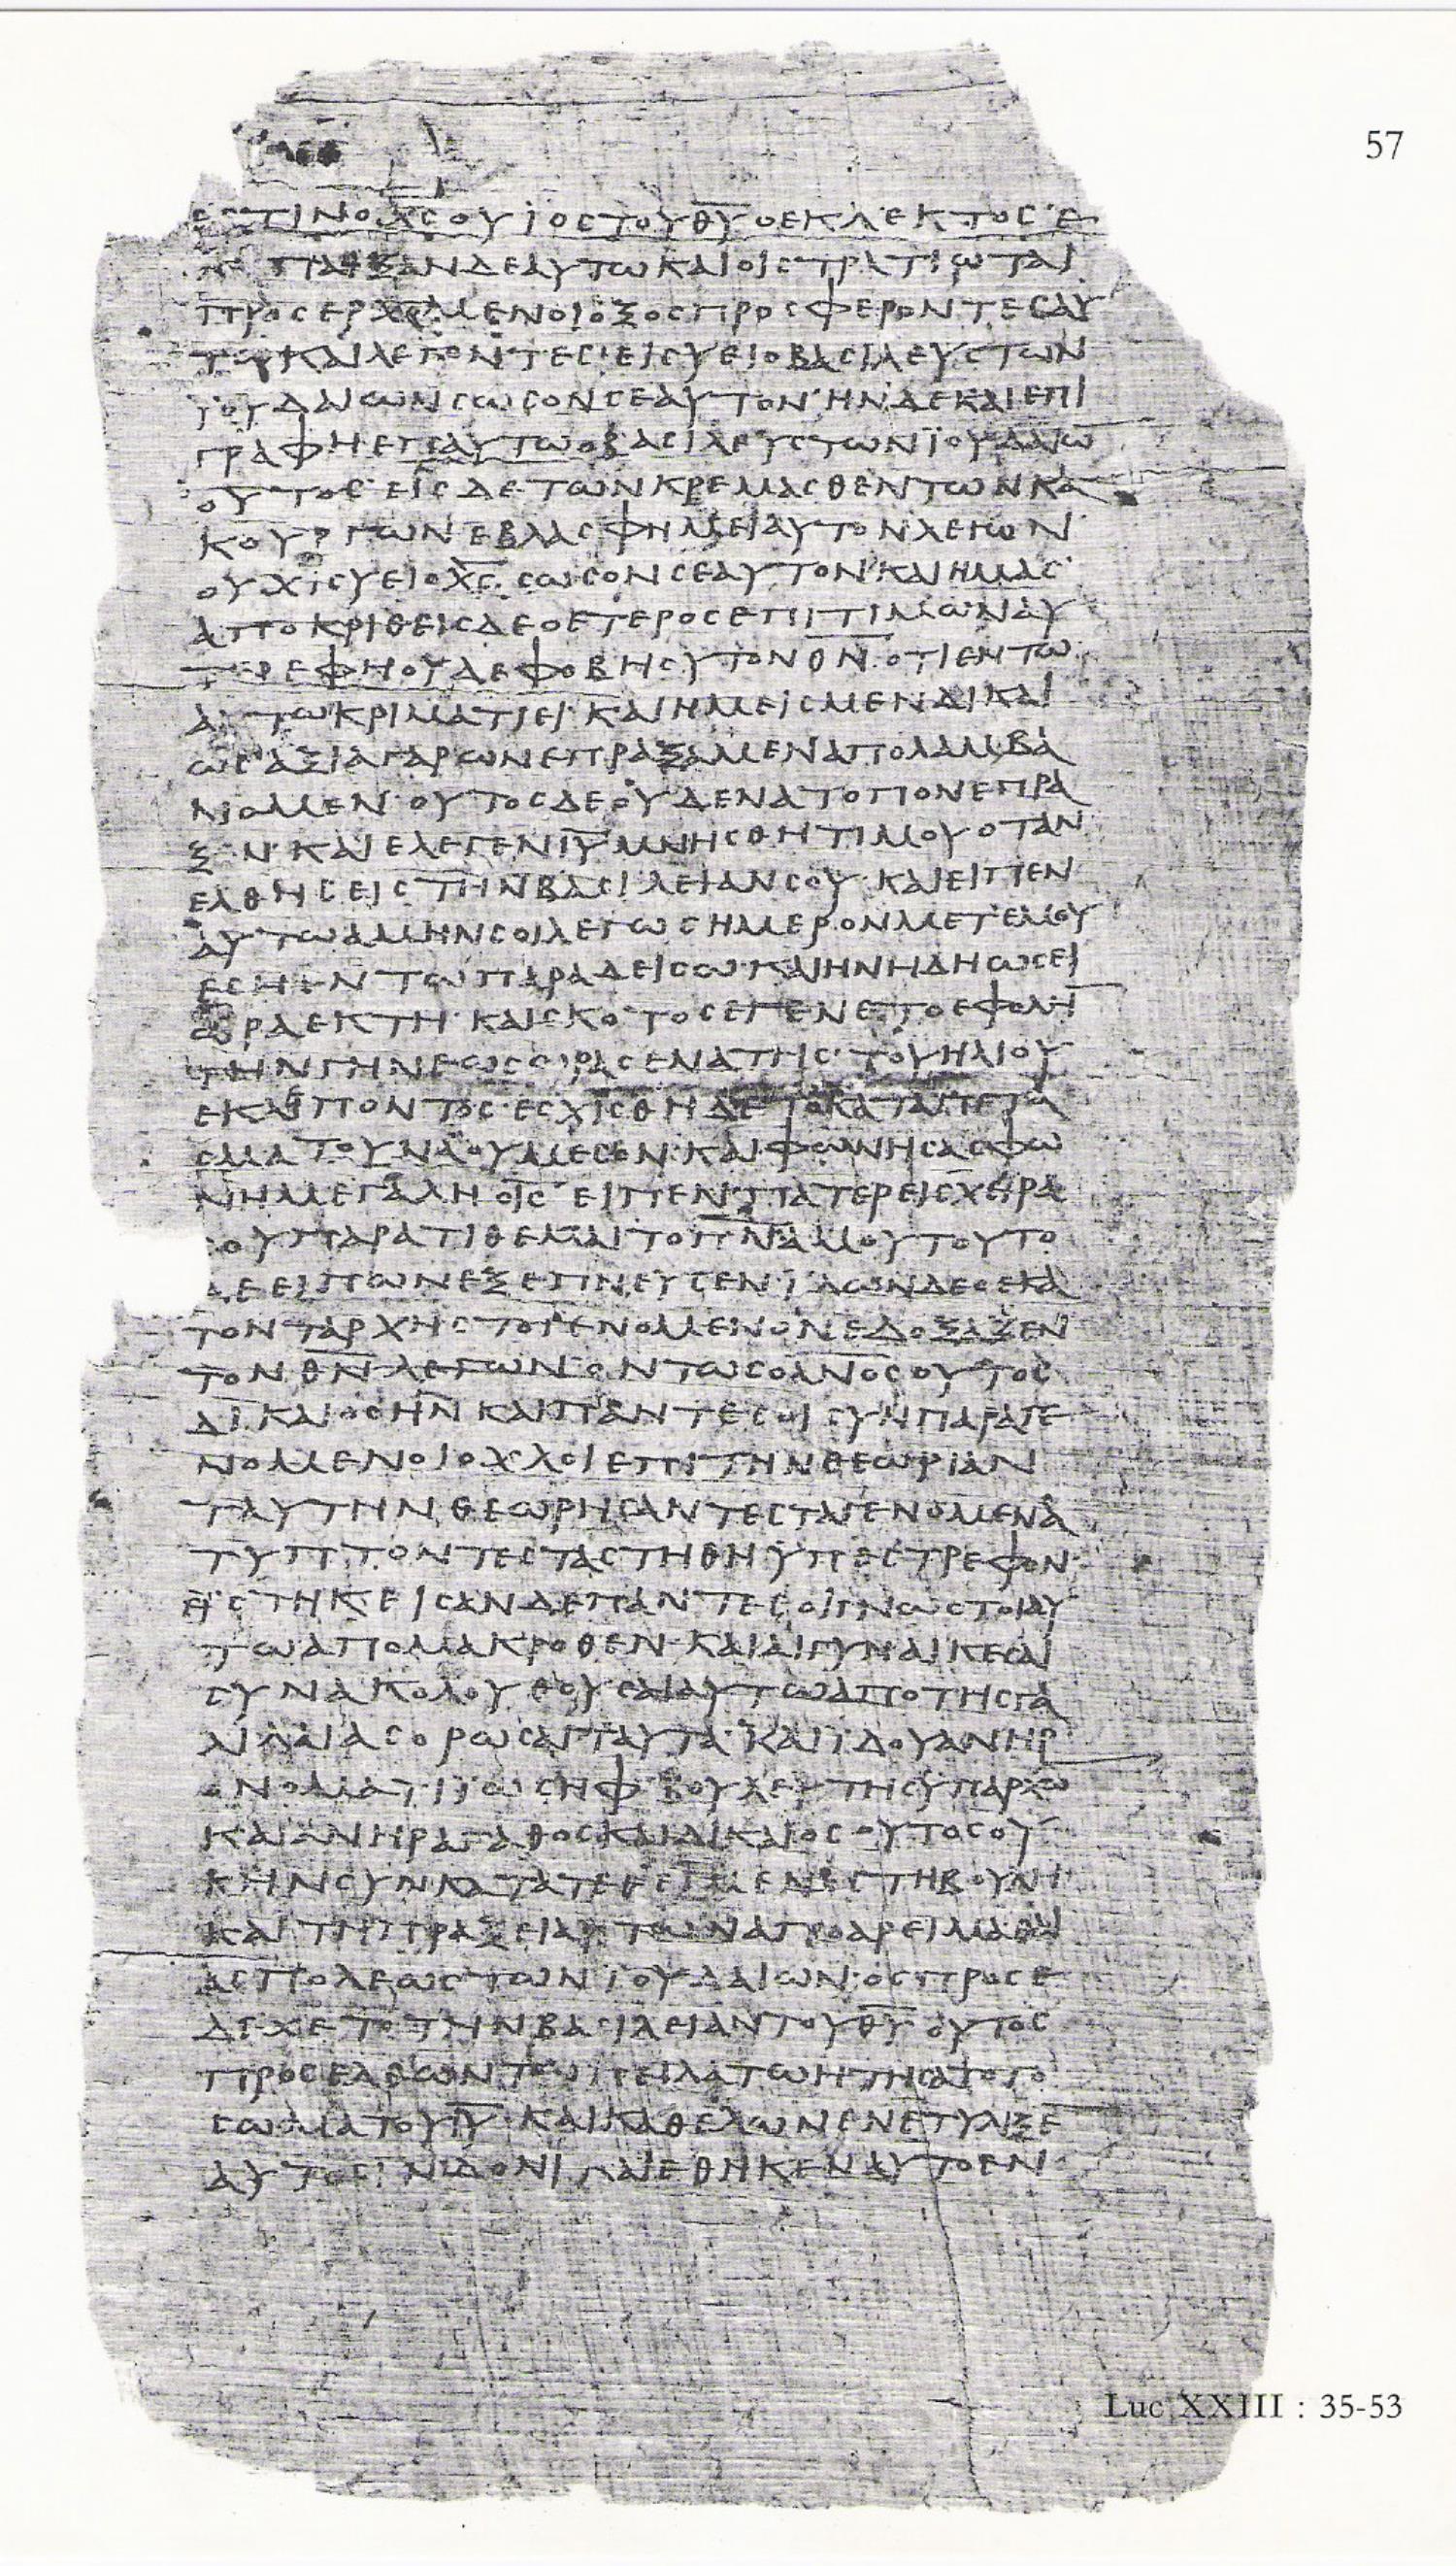 57
ΕϹΤΙΝ Ο Χ̅Ϲ̅ Ο ΥΙΟϹ ΤΟΥ Θ̅Υ̅ Ο ΕΚΛΕΚΤΟϹ Ε
ΠΑΙΞΑΝ ΔΕ ΑΥΤΩ ΚΑΙ ΟΙ ϹΤΡΑΤΙΩΤΑΙ
ΠΡΟϹΕΡΧΟΜΕΝΟΙ ΟΞΟϹ ΠΡΟϹΦΕΡΟΝΤΕϹ ΑΥ
ΤΩ ΚΑΙ ΛΕΓΟΝΤΕϹ· ΕΙ ϹΥ ΕΙ Ο ΒΑϹΙΛΕΥϹ ΤΩΝ
ΙΟΥΔΑΙΩΝ ϹΩϹΟΝ ϹΕΑΥΤΟΝ· ΗΝ ΔΕ ΚΑΙ ΕΠΙ
ΓΡΑΦΗ ΕΠ ΑΥΤΩ Ο ΒΑϹΙΛΕΥϹ ΤΩΝ ΪΟΥΔΑΙΩ̅
ΟΥΤΟϹ· ΕΙϹ ΔΕ ΤΩΝ ΚΡΕΜΑϹΘΕΝΤΩΝ ΚΑ
ΚΟΥΡΓΩΝ ΕΒΛΑϹΦΗΜΕΙ ΑΥΤΟΝ ΛΕΓΩΝ·
ΟΥΧΙ ϹΥ ΕΙ Ο Χ̅Ϲ̅· ϹΩϹΟΝ ϹΕΑΥΤΟΝ ΚΑΙ ΗΜΑϹ·
ΑΠΟΚΡΙΘΕΙϹ ΔΕ Ο ΕΤΕΡΟϹ ΕΠΙΤΙΜΩΝ ΑΥ
ΕΦΗ ΟΥΔΕ ΦΟΒΗ ϹΥ ΤΟΝ Θ̅Ν̅· ΟΤΙ ΕΝ ΤΩ
ΤΩ ΚΡΙΜΑΤΙ ΕΙ· ΚΑΙ ΗΜΕΙϹ ΜΕΝ ΔΙΚΑΙ
ΩϹ ΑΞΙΑ ΓΑΡ ΩΝ ΕΠΡΑΞΑΜΕΝ ΑΠΟΛΑΜΒΑ
ΝΟΜΕΝ· ΟΥΤΟϹ ΔΕ ΟΥΔΕΝ ΑΤΟΠΟΝ ΕΠΡΑ
Ξ Ν· ΚΑΙ ΕΛΕΓΕΝ Ι̅Υ̅ ΜΝΗϹΘΗΤΙ ΜΟΥ ΟΤΑΝ
ΕΛΘΗϹ ΕΙϹ ΤΗΝ ΒΑϹΙΛΕΙΑΝ ϹΟΥ· ΚΑΙ ΕΙΠΕΝ
ΑΥΤΩ ΑΜΗΝ ϹΟΙ ΛΕΓΩ ϹΗΜΕΡΟΝ ΜΕΤ ΕΜΟΥ
ΕϹΗ ΕΝ ΤΩ ΠΑΡΑΔΕΙϹΩ· ΚΑΙ ΗΝ ΗΔΗ ΩϹΕΙ
ΩΡΑ ΕΚΤΗ· ΚΑΙ ϹΚΟΤΟϹ ΕΓΕΝΕΤΟ ΕΦ ΟΛΗ̅
ΤΗΝ ΓΗΝ ΕΩϹ ΩΡΑϹ ΕΝΑΤΗϹ· ΤΟΥ ΗΛΙΟΥ
ΕΚΛΙΠΟΝΤΟϹ· ΕϹΧΙϹΘΗ ΔΕ ΤΟ ΚΑΤΑΠΕΤΑ
ϹΜΑ ΤΟΥ ΝΑΟΥ ΜΕϹΟΝ· ΚΑΙ ΦΩΝΗϹΑϹ ΦΩ
ΝΗ ΜΕΓΑΛΗ Ο Ι̅Ϲ̅ ΕΙΠΕΝ· ΠΑΤΕΡ ΕΙϹ ΧΕΙΡΑ
ϹΟΥ ΠΑΡΑΤΙΘΕΜΑΙ ΤΟ Π̅Ν̅Α̅ ΜΟΥ ΤΟΥΤΟ
ΔΕ ΕΙΠΩΝ ΕΞΕΠΝΕΥϹΕΝ· ΙΔΩΝ ΔΕ Ο ΕΚΑ
ΤΟΝΤΑΡΧΗϹ ΤΟ ΓΕΝΟΜΕΝΟΝ ΕΔΟΞΑΖΕΝ
ΤΟΝ Θ̅Ν̅ ΛΕΓΩΝ ΟΝΤΩϹ Ο Α̅Ν̅Ο̅Ϲ̅ ΟΥΤΟϹ
ΔΙΚΑΙΟϹ ΗΝ ΚΑΙ ΠΑΝΤΕϹ ΟΙ ϹΥΝΠΑΡΑΓΕ
ΝΟΜΕΝΟΙ ΟΧΛΟΙ ΕΠΙ ΤΗΝ ΘΕΩΡΙΑΝ
ΤΑΥΤΗΝ ΘΕΩΡΗϹΑΝΤΕϹ ΤΑ ΓΕΝΟΜΕΝΑ
ΤΥΠΤΟΝΤΕϹ ΤΑ ϹΤΗΘΗ ΥΠΕϹΤΡΕΦΟΝ·
ΕΙϹΤΗΚΕΙϹΑΝ ΔΕ ΠΑΝΤΕϹ ΟΙ ΓΝΩϹΤΟΙ ΑΥ
ΤΩ ΑΠΟ ΜΑΚΡΟΘΕΝ· ΚΑΙ ΑΙ ΓΥΝΑΙΚΕϹ ΑΙ
ϹΥΝΑΚΟΛΟΥΘΟΥϹΑΙ ΑΥΤΩ ΑΠΟ ΤΗϹ ΓΑ
ΛΙΛΑΙΑϹ ΟΡΩϹΑΙ ΤΑΥΤΑ· ΚΑΙ ΪΔΟΥ ΑΝΗΡ
ΟΝΟΜΑΤΙ ΪΩϹΗΦ ΒΟΥΛΕΥΤΗϹ ΥΠΑΡΧΩ̅
ΚΑΙ ΑΝΗΡ ΑΓΑΘΟϹ ΚΑΙ ΔΙΚΑΙΟϹ ΟΥΤΟϹ ΟΥ
Κ ΗΝ ϹΥΝΚΑΤΑΤΕΘΕΙΜΕΝΟϹ ΤΗ ΒΟΥΛΗ
ΚΑΙ ΤΗ ΠΡΑΞΕΙ ΑΥΤΩΝ ΑΠΟ ΑΡΕΙΜΑΘΑΙ
ΑϹ ΠΟΛΕΩϹ ΤΩΝ ΪΟΥΔΑΙΩΝ· ΟϹ ΠΡΟϹΕ
ΔΕΧΕΤΟ ΤΗΝ ΒΑϹΙΛΕΙΑΝ ΤΟΥ Θ̅Υ̅ ΟΥΤΟϹ
ΠΡΟϹΕΛΘΩΝ ΤΩ ΠΕΙΛΑΤΩ ΗΤΗϹΑΤΟ ΤΟ
ϹΩΜΑ ΤΟΥ Ι̅Υ̅· ΚΑΙ ΚΑΘΕΛΩΝ ΕΝΕΤΥΛΙΞΕ̅
ΑΥΤΟ ϹΙΝΔΟΝΙ ΚΑΙ ΕΘΗΚΕΝ ΑΥΤΟ ΕΝ
Luc XXIII : 35-53